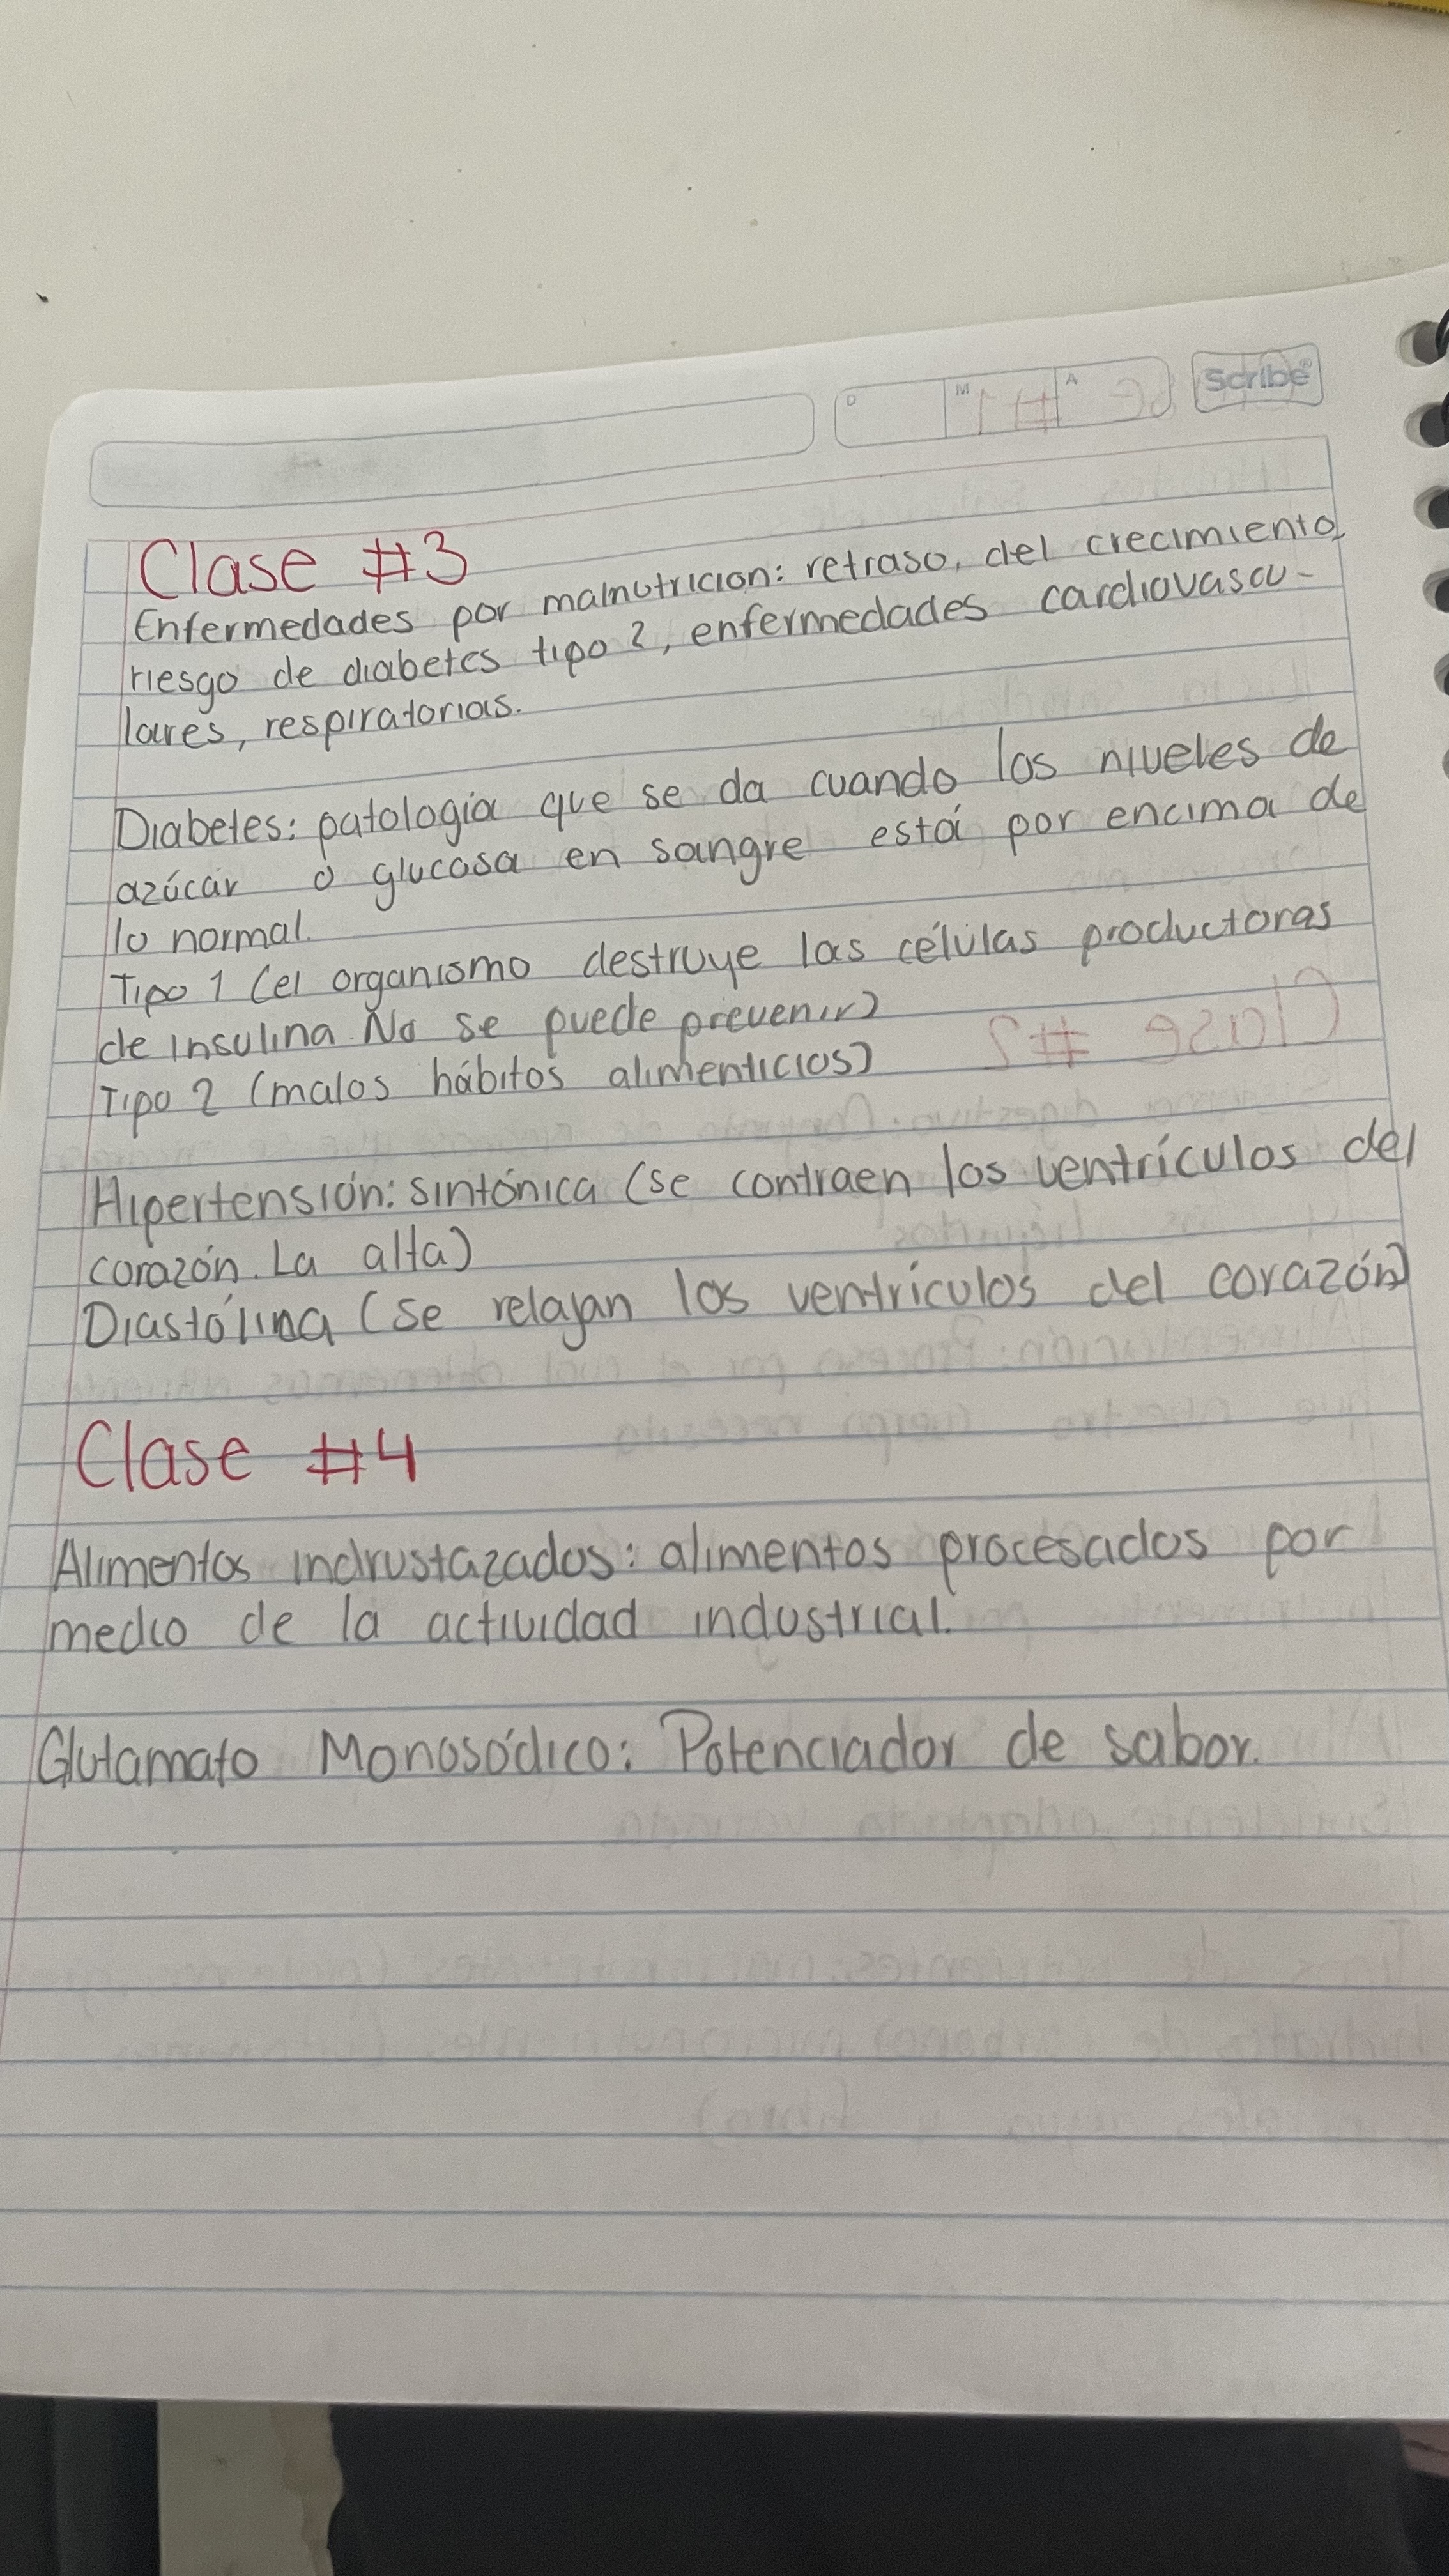 Scribe®
D M A
Clase #3
Enfermedades por malnutricion: retraso, del crecimiento
riesgo de diabetes tipo 2, enfermedades cardiovascu-
lares, respiratorias.
Diabetes: patología que se da cuando los niveles de
azúcar ó glucosa en sangre está por encima de
lo normal.
Tipo 1 (el organismo destruye las células productoras
de insulina. No se puede prevenir)
Tipo 2 (malos hábitos alimenticios)
Hipertensión: sintónica (se contraen los ventrículos del
corazón. La alta)
Diastólina (se relajan los ventrículos del corazón)
Clase #4
Alimentos indrustazados: alimentos procesados por
medio de la actividad industrial.
Glutamato Monosódico: Potenciador de sabor.